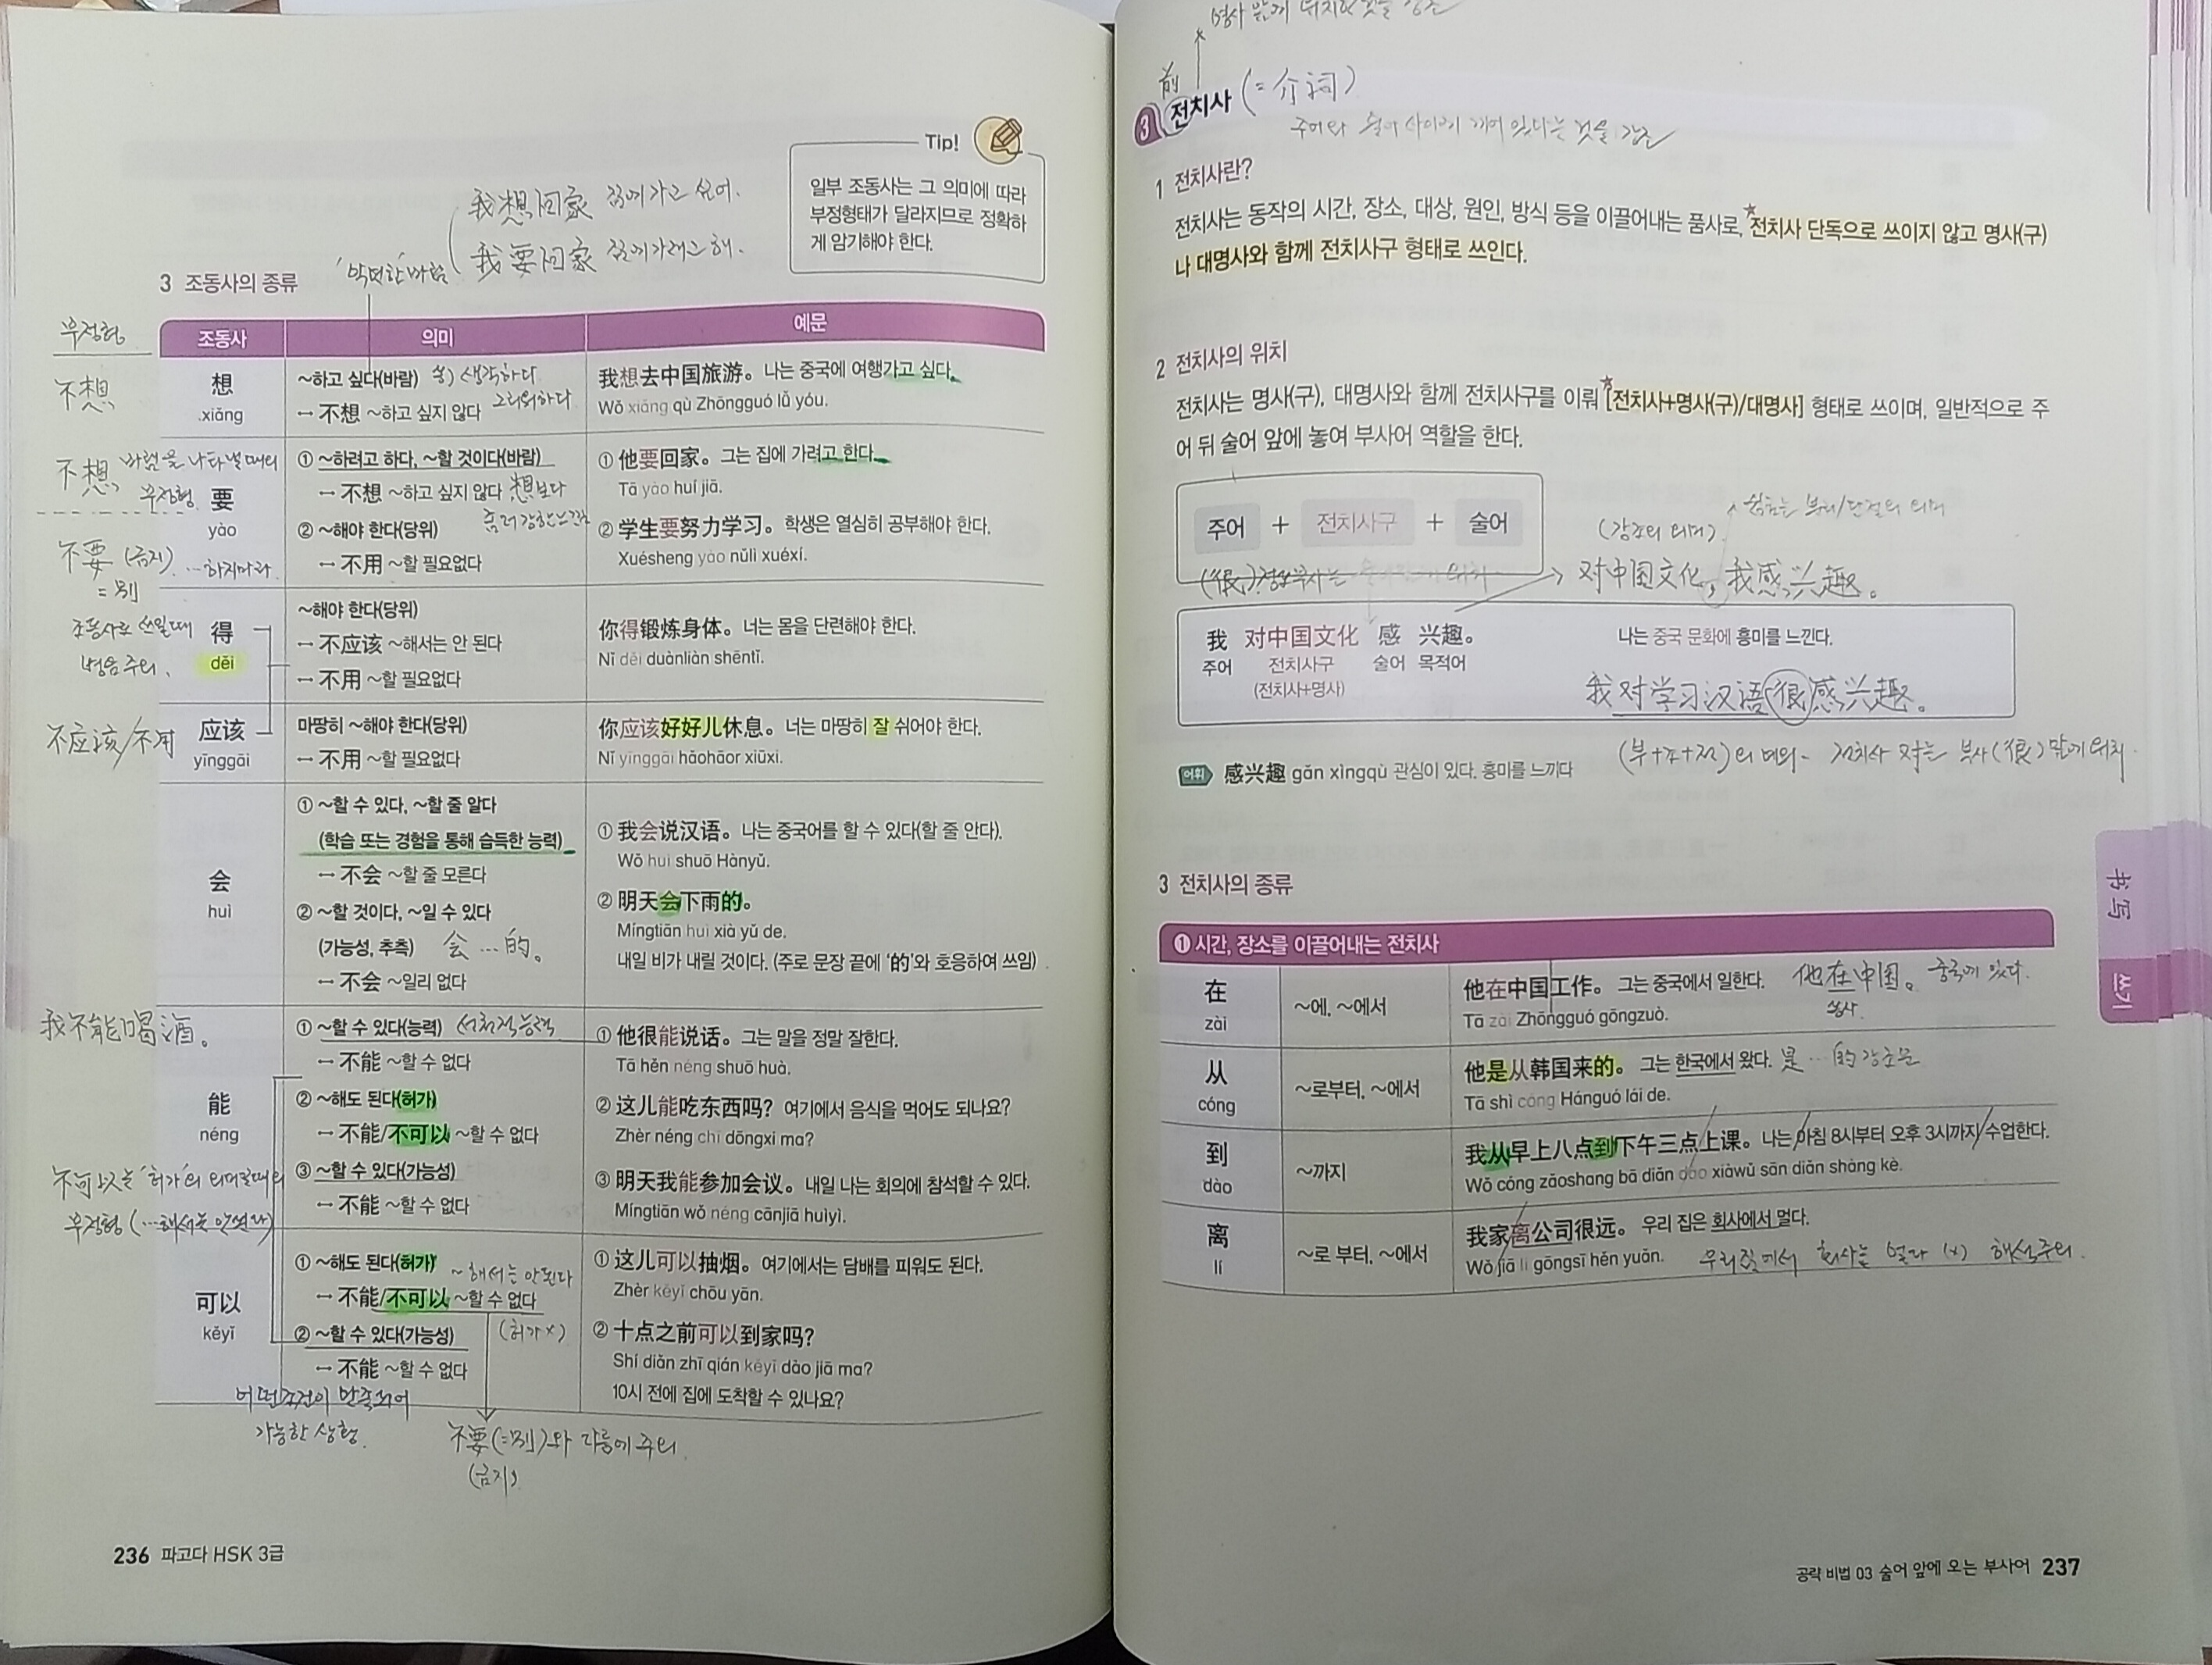 Tip!
일부 조동사는 그 의미에 따라
부정형태가 달라지므로 정확하
게 암기해야 한다.
我想回家 집에 가고 싶어.
我要回家 집에 가려고 해.
'막연한' 바람
3 조동사의 종류
부정형
조동사 의미 예문
不想
想
xiǎng
~하고 싶다(바람) 동) 생각하다
그리워하다
↔ 不想 ~하고 싶지 않다
我想去中国旅游。 나는 중국에 여행가고 싶다.
Wǒ xiǎng qù Zhōngguó lǚ yóu.
不想 바람을 나타낼 때의
부정형
不要 (금지) …하지마라
= 别
要
yào
① ~하려고 하다, ~할 것이다(바람)
↔ 不想 ~하고 싶지 않다 想보다
좀 더 강한 느낌
② ~해야 한다(당위)
↔ 不用 ~할 필요없다
① 他要回家。 그는 집에 가려고 한다.
Tā yào huí jiā.
② 学生要努力学习。 학생은 열심히 공부해야 한다.
Xuésheng yào nǔlì xuéxí.
조동사로 쓰일 때
발음주의.
得
děi
~해야 한다(당위)
↔ 不应该 ~해서는 안 된다
↔ 不用 ~할 필요없다
你得锻炼身体。 너는 몸을 단련해야 한다.
Nǐ děi duànliàn shēntǐ.
不应该/不用
应该
yīnggāi
마땅히 ~해야 한다(당위)
↔ 不用 ~할 필요없다
你应该好好儿休息。 너는 마땅히 잘 쉬어야 한다.
Nǐ yīnggāi hǎohāor xiūxi.
会
huì
① ~할 수 있다, ~할 줄 알다
(학습 또는 경험을 통해 습득한 능력)
↔ 不会 ~할 줄 모른다
② ~할 것이다, ~일 수 있다
(가능성, 추측) 会 …的。
↔ 不会 ~일리 없다
① 我会说汉语。 나는 중국어를 할 수 있다(할 줄 안다).
Wǒ huì shuō Hànyǔ.
② 明天会下雨的。
Míngtiān huì xià yǔ de.
내일 비가 내릴 것이다. (주로 문장 끝에 '的'와 호응하여 쓰임)
我不能喝酒。
不可以는 '허가'의 의미일때의
부정형 (…해서는 안된다)
能
néng
① ~할 수 있다(능력) 선천적능력
↔ 不能 ~할 수 없다
② ~해도 된다(허가)
↔ 不能/不可以 ~할 수 없다
③ ~할 수 있다(가능성)
↔ 不能 ~할 수 없다
① 他很能说话。 그는 말을 정말 잘한다.
Tā hěn néng shuō huà.
② 这儿能吃东西吗? 여기에서 음식을 먹어도 되나요?
Zhèr néng chī dōngxi ma?
③ 明天我能参加会议。 내일 나는 회의에 참석할 수 있다.
Míngtiān wǒ néng cānjiā huìyì.
可以
kěyǐ
① ~해도 된다(허가) ~해서는 안된다
↔ 不能/不可以 ~할 수 없다
② ~할 수 있다(가능성) (허가x)
↔ 不能 ~할 수 없다
① 这儿可以抽烟。 여기에서는 담배를 피워도 된다.
Zhèr kěyǐ chōu yān.
② 十点之前可以到家吗?
Shí diǎn zhī qián kěyǐ dào jiā ma?
10시 전에 집에 도착할 수 있나요?
어떤조건이 만족되어
가능한 상형.
不要(=别)와 다름에 주의.
(금지)
236 파고다 HSK 3급
명사 앞에 위치한 것을 강조
前
3 전치사 (= 介词)
주어와 술어 사이에 끼어 있다는 것을 강조
1 전치사란?
전치사는 동작의 시간, 장소, 대상, 원인, 방식 등을 이끌어내는 품사로, 전치사 단독으로 쓰이지 않고 명사(구)
나 대명사와 함께 전치사구 형태로 쓰인다.
2 전치사의 위치
전치사는 명사(구), 대명사와 함께 전치사구를 이뤄 [전치사+명사(구)/대명사] 형태로 쓰이며, 일반적으로 주
어 뒤 술어 앞에 놓여 부사어 역할을 한다.
주어 + 전치사구 + 술어
쉼표는 분리/단절의 의미
(강조의 의미)
(很) 정도부사는
对中国文化, 我感兴趣。
我 对中国文化 感 兴趣。 나는 중국 문화에 흥미를 느낀다.
주어 전치사구 술어 목적어
(전치사+명사)
我对学习汉语很感兴趣。
(부+조+전)의 예외- 전치사 对는 부사(很) 앞에 위치.
어휘 感兴趣 gǎn xìngqù 관심이 있다, 흥미를 느끼다
3 전치사의 종류
❶ 시간, 장소를 이끌어내는 전치사
在
zài
~에, ~에서
他在中国工作。 그는 중국에서 일한다. 他在中国。 중국에 있다.
Tā zài Zhōngguó gōngzuò.
동사.
从
cóng
~로부터, ~에서
他是从韩国来的。 그는 한국에서 왔다. 是 …的 강조문
Tā shì cóng Hánguó lái de.
到
dào
~까지
我从早上八点到下午三点上课。 나는 아침 8시부터 오후 3시까지 수업한다.
Wǒ cóng zǎoshang bā diǎn dào xiàwǔ sān diǎn shàng kè.
离
lí
~로 부터, ~에서
我家离公司很远。 우리 집은 회사에서 멀다.
Wǒ jiā lí gōngsī hěn yuǎn. 우리집에서 회사는 멀다 (x) 해석주의.
书写 쓰기
공략 비법 03 술어 앞에 오는 부사어 237